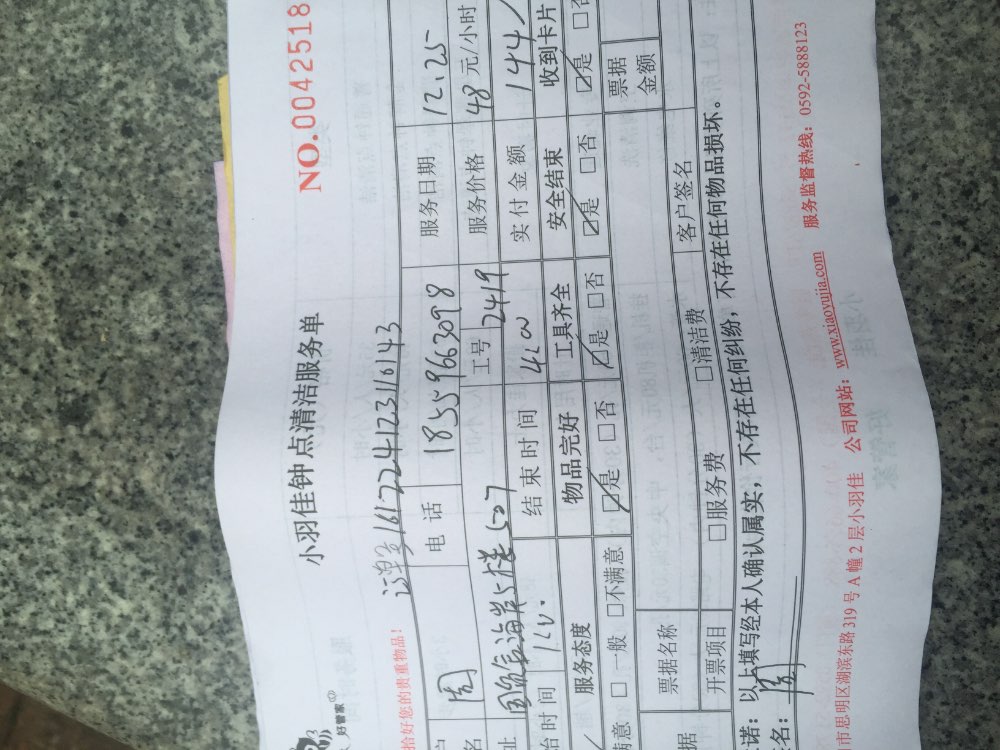 好管家
小羽佳钟点清洁服务单
NO.0042518
161224123116143
恰好您的贵重物品!
周 电话 18559663098 服务日期 12.25
工号 2419 服务价格 48元/小时
507
始时间 结束时间 实付金额 144
服务态度 物品完好 工具齐全 安全结束 收到卡片
满意 □一般 □不满意 ☑是 □否 ☑是 □否 ☑是 □否 ☑是 □否
票据名称 票据金额
开票项目 □服务费 □清洁费 客户签名
诺:以上填写经本人确认属实,不存在任何纠纷,不存在任何物品损坏。
名: 周
市思明区湖滨东路319号A幢2层小羽佳 公司网站:www.xiaoyujia.com 服务监督热线:0592-5888123